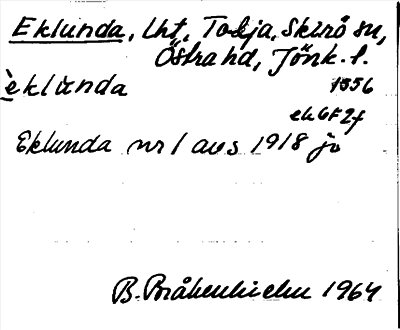 Eklunda, Lht, Tolja, Skirö sn,
Östra hd, Jönk. l.
èklùnda
1556
ek 6F 2f
Eklunda nr 1 avs 1918 jo
B. Bråkenhielm 1964